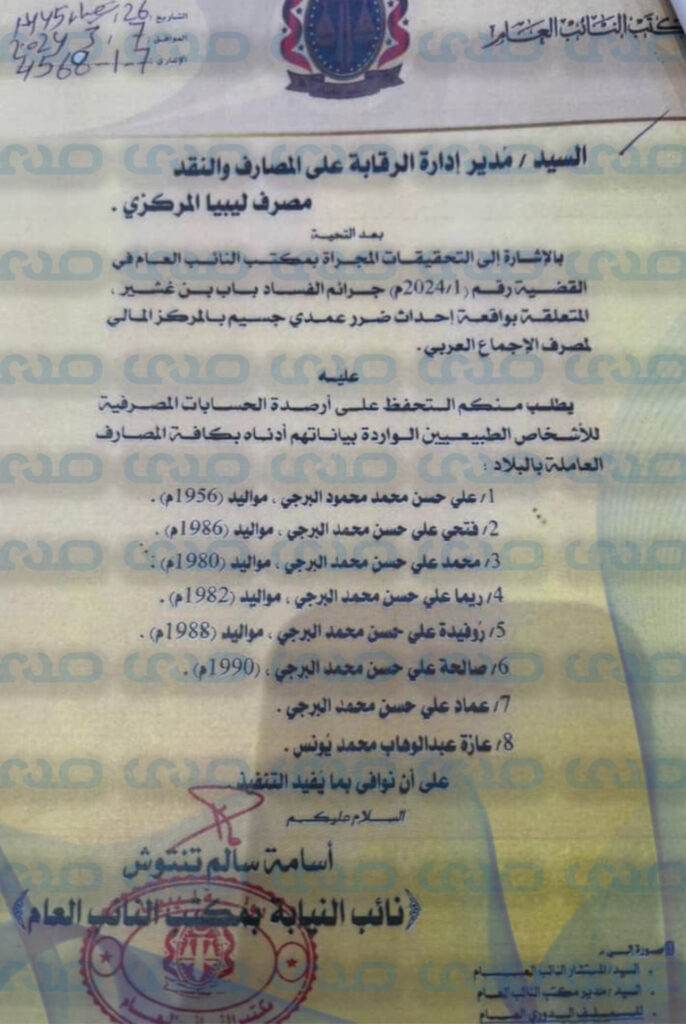 مكتب النائب العام
التاريخ: 26/شعبان/1445
الموافق: 7/3/2024
الإشاري: 7-1-4568
السيد / مُدير إدارة الرقابة على المصارف والنقد
مصرف ليبيا المركزي .
بعد التحية
بالإشارة إلى التحقيقات المجراة بمكتب النائب العام في
القضية رقم (2024/1م) جرائم الفساد باب بن غشير ،
المتعلقة بواقعة إحداث ضرر عمدي جسيم بالمركز المالي
لمصرف الإجماع العربي.
عليه
يطلب منكم التحفظ على أرصدة الحسابات المصرفية
للأشخاص الطبيعيين الواردة بياناتهم أدناه بكافة المصارف
العاملة بالبلاد :
1/ علي حسن محمد محمود البرجي ، مواليد (1956م) .
2/ فتحي علي حسن محمد البرجي ، مواليد (1986م) .
3/ محمد علي حسن محمد البرجي ، مواليد (1980م) .
4/ ريما علي حسن محمد البرجي ، مواليد (1982م) .
5/ رُوفيدة علي حسن محمد البرجي ، مواليد (1988م) .
6/ صالحة علي حسن محمد البرجي ، (1990م) .
7/ عماد علي حسن محمد البرجي .
8/ عازة عبدالوهاب محمد يُونس .
على أن نوافى بما يُفيد التنفيذ .
السلام عليكم
أسامة سالم تنتوش
نائب النيابة بمكتب النائب العام
صورة إلى :
السيد/ المستشار النائب العام
السيد/ مدير مكتب النائب العام
للملف الدوري العام
مكتب النائب العام
صدى